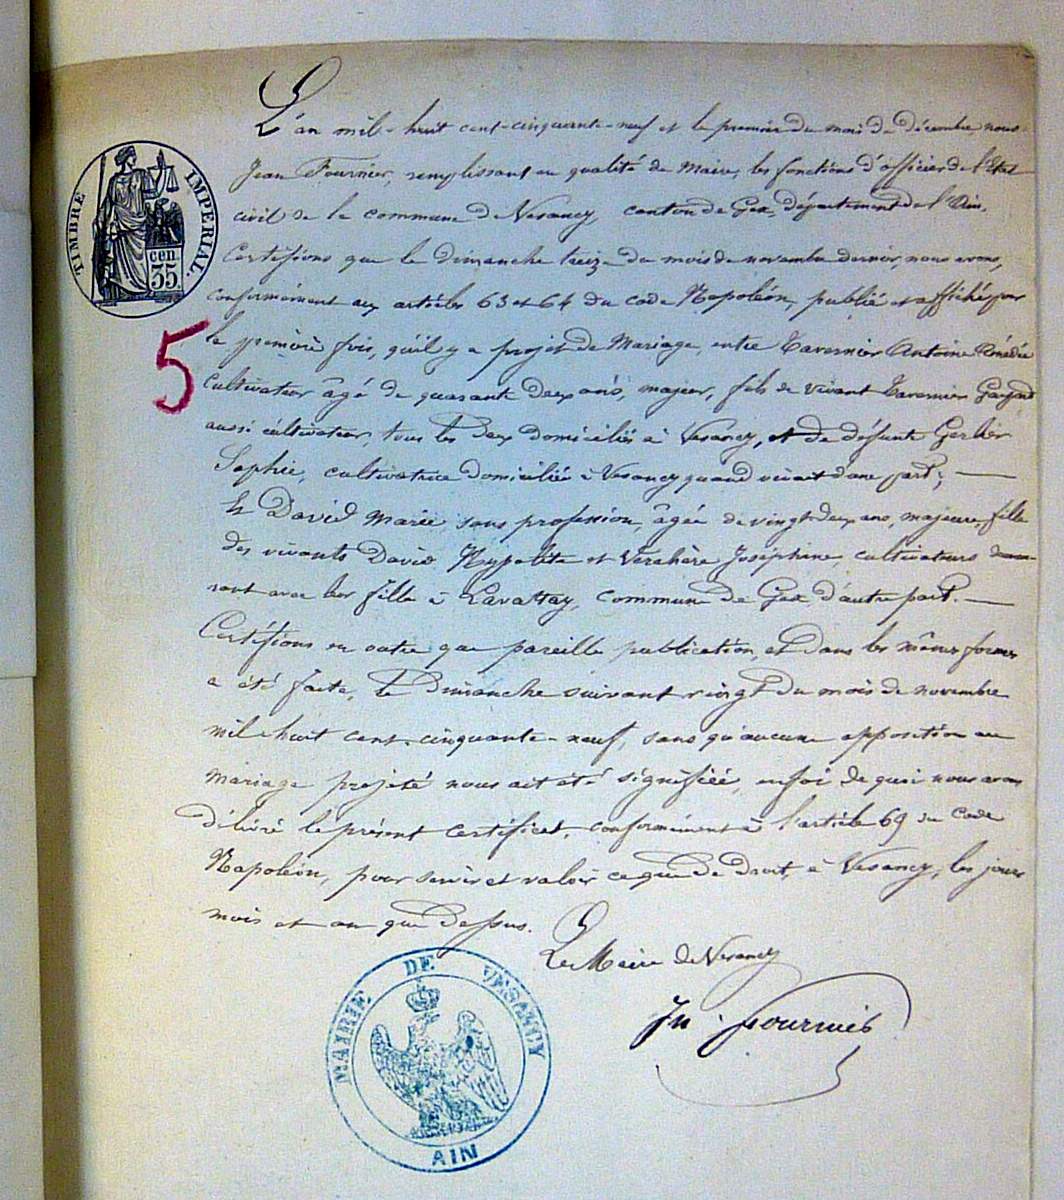 TIMBRE IMPERIAL
cen
35
5
L'an mil-huit cent-cinquante-neuf et le premier du mois de décembre, nous
Jean Fournier, remplissant en qualité de Maire, les fonctions d'officier de l'Etat
civil de la commune de Vesancy, canton de Gex, département de l'Ain,
Certifions que le dimanche treize du mois de novembre dernier, nous avons,
conformément aux articles 63 et 64 du code Napoléon, publié et affiché pour
la première fois, qu'il y a projet de Mariage, entre Tavernier Antoine Amédée
cultivateur âgé de quarante deux ans, majeur, fils de vivant Tavernier
aussi cultivateur, tous les deux domiciliés à Vesancy, et de défunte Gerlier
Sophie, cultivatrice domiciliée à Vesancy quand vivait d'une part;
Et David Marie sans profession, âgée de vingt-deux ans, majeure, fille
des vivants David Hypolite et Joséphine, cultivateurs demeu-
rant avec leur fille à Lavattay, commune de Gex, d'autre part.
Certifions en outre que pareille publication, et dans les mêmes formes
a été faite, le Dimanche suivant vingt du mois de novembre
mil-huit cent-cinquante-neuf, sans qu'aucune opposition au
mariage projeté nous ait été signifiée, en foi de quoi nous avons
délivré le présent certificat, conformément à l'article 69 du Code
Napoléon, pour servir et valoir ce que de droit, à Vesancy, les jour
mois et an que dessus.
Le Maire de Vesancy
Jn. Fournier
MAIRIE DE VESANCY
AIN